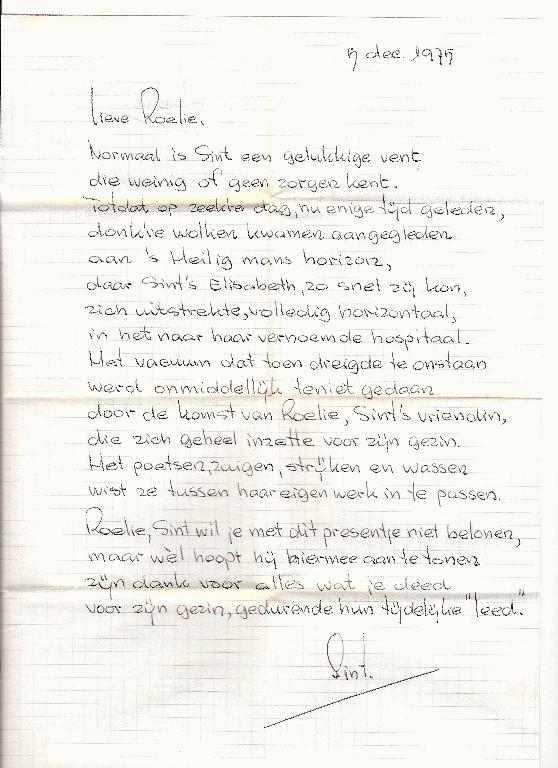 5 dec. 1975
Lieve Roelie.
Normaal is Sint een gelukkige vent
die weinig of geen zorgen kent.
Totdat op zeek're dag, nu enige tijd geleden,
donk're wolken kwamen aangegleden
aan 's Heilig mans horizon,
daar Sint's Elisabeth, zo snel zij kon,
zich uitstrekte, volledig horizontaal,
in het naar haar vernoemde hospitaal.
Het vacuum dat toen dreigde te onstaan
werd onmiddellijk teniet gedaan
door de komst van Roelie, Sint's vriendin,
die zich geheel inzette voor zijn gezin.
Het poetsen, zuigen, strijken en wassen
wist ze tussen haar eigen werk in te passen.
Roelie, Sint wil je met dit presentje niet belonen,
maar wèl hoopt hij hiermee aan te tonen
zijn dank voor alles wat je deed
voor zijn gezin, gedurende hun tijdelijke "leed".
Sint.